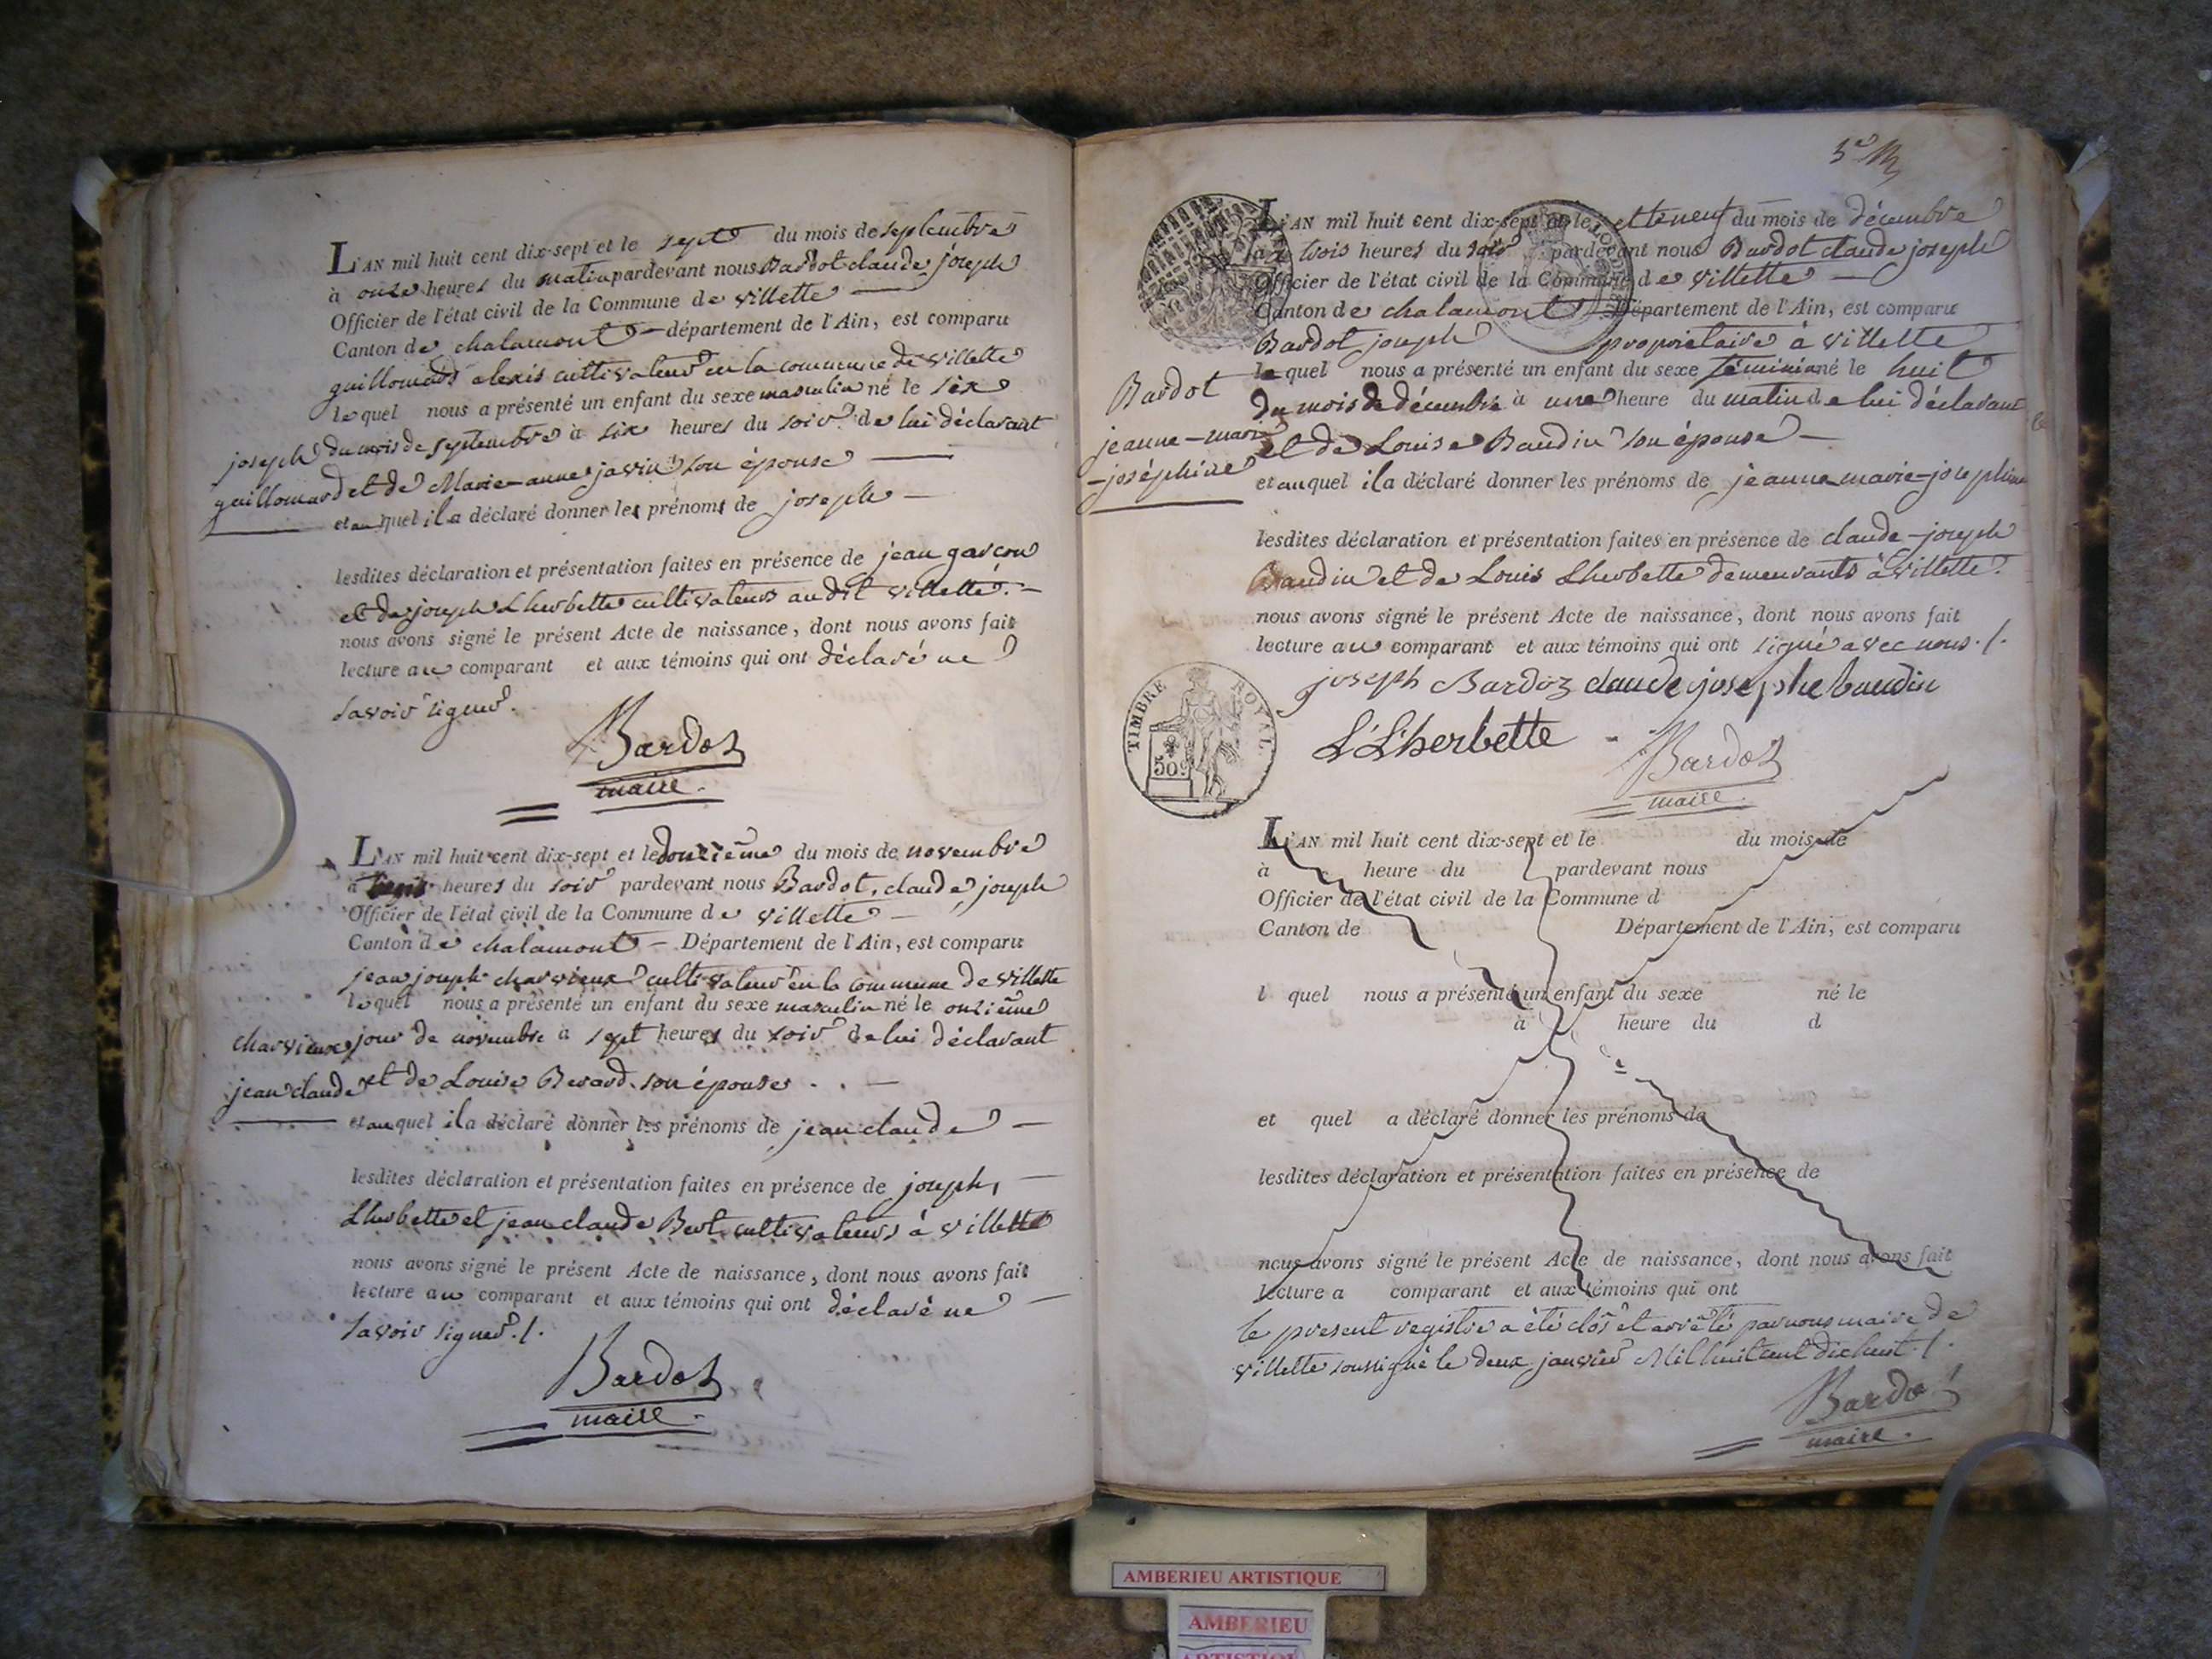 L'AN mil huit cent dix-sept et le sept du mois de septembre
à onze heures du matin pardevant nous Bardot claude joseph
Officier de l'état civil de la Commune de villette —
Canton de chalamont — département de l'Ain, est comparu
guillomard alexis cultivateur en la commune de villette
lequel nous a présenté un enfant du sexe masculin né le six
du mois de septembre à six heures du soir de lui déclarant
joseph
guillomard
et de Marie-anne javin son épouse —
et auquel il a déclaré donner les prénoms de joseph —
lesdites déclaration et présentation faites en présence de jean garcon
et de joseph Lherbette cultivateurs au dit villette. —
nous avons signé le présent Acte de naissance, dont nous avons fait
lecture au comparant et aux témoins qui ont déclaré ne
savoir signer.
Bardot
maire.
L'AN mil huit cent dix-sept et le douzième du mois de novembre
à heures du soir pardevant nous Bardot, claude, joseph
Officier de l'état civil de la Commune de villette —
Canton de chalamont — Département de l'Ain, est comparu
jean joseph charvieux cultivateur en la commune de villette
lequel nous a présenté un enfant du sexe masculin né le onzième
charvieux
jour de novembre à sept heures du soir de lui déclarant
jean claude
et de Louise Berard son épouse . . —
et auquel il a déclaré donner les prénoms de jean claude —
lesdites déclaration et présentation faites en présence de joseph, —
Lherbette et jean claude Bert cultivateurs à villette
nous avons signé le présent Acte de naissance, dont nous avons fait
lecture au comparant et aux témoins qui ont déclaré ne —
savoir signer./.
Bardot
maire.
L'AN mil huit cent dix-sept et le neuf du mois de décembre
à trois heures du soir pardevant nous Bardot claude joseph
Officier de l'état civil de la Commune de villette —
Canton de chalamont Département de l'Ain, est comparu
Bardot joseph propriétaire à villette
lequel nous a présenté un enfant du sexe féminin né le huit
Bardot
jeanne-marie
-joséphine
du mois de décembre à une heure du matin de lui déclarant
et de Louise Baudin son épouse —
et auquel il a déclaré donner les prénoms de jeanne marie-josephine
lesdites déclaration et présentation faites en présence de claude-joseph
Baudin et de Louis Lherbette demeurants à villette.
nous avons signé le présent Acte de naissance, dont nous avons fait
lecture au comparant et aux témoins qui ont signé avec nous./.
joseph Bardoz claude josephe baudin
L Lherbette
Bardot
maire.
TIMBRE ROYAL.
50c
L'AN mil huit cent dix-sept et le du mois de
à heure du pardevant nous
Officier de l'état civil de la Commune d
Canton de Département de l'Ain, est comparu
l quel nous a présenté un enfant du sexe né le
à heure du d
et quel a déclaré donner les prénoms de
lesdites déclaration et présentation faites en présence de
nous avons signé le présent Acte de naissance, dont nous avons fait
lecture a comparant et aux témoins qui ont
le present registre a été clos et arrêté par nous maire de
villette soussigné le deux janvier Mil huit cent dix huit./.
Bardot
maire.
AMBERIEU ARTISTIQUE
AMBERIEU
ARTISTIQUE